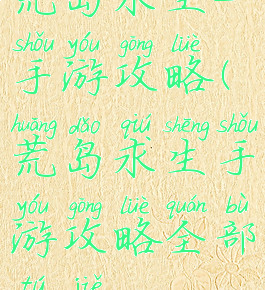 荒岛求生
shǒu yóu gōng lüè
手游攻略(
huāng dǎo qiú shēng shǒu
荒岛求生手
yóu gōng lüè quán bù
游攻略全部
tú jiě